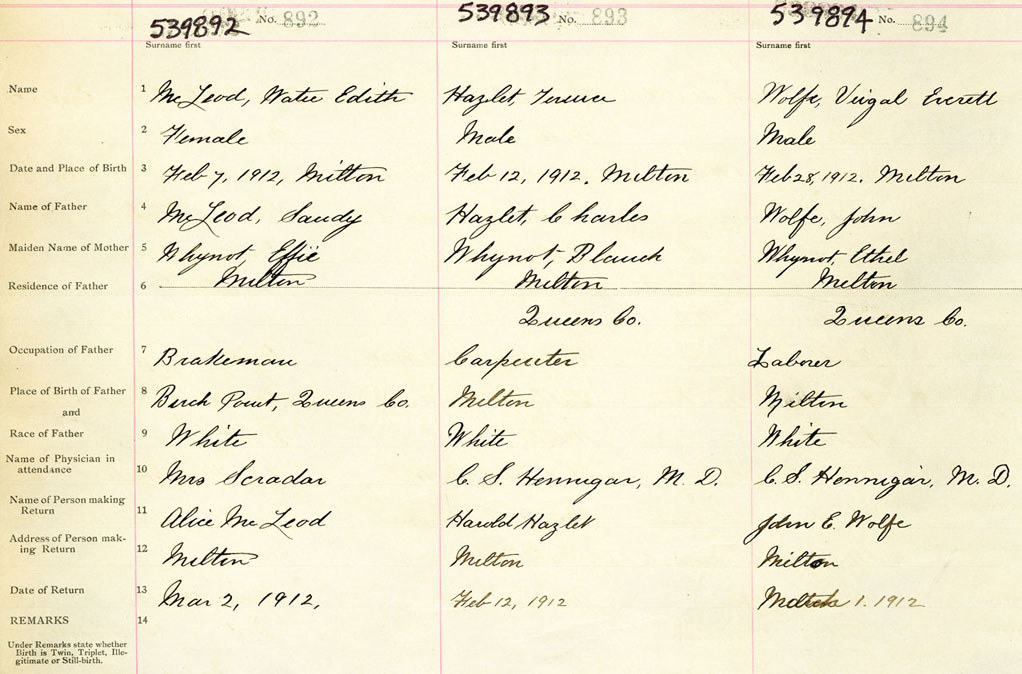 539892 No. 892 539893 No. 893 539894 No. 894
Surname first Surname first Surname first
Name 1 McLeod, Edith Hazlet, Terence Wolfe, Virgal Everett
Sex 2 Female Male Male
Date and Place of Birth 3 Feb 7, 1912, Milton Feb 12, 1912. Milton Feb 28, 1912. Milton
Name of Father 4 McLeod, Sandy Hazlet, Charles Wolfe, John
Maiden Name of Mother 5 Whynot, Effie Whynot, Blanch Whynot, Ethel
Residence of Father 6 Milton Milton Milton
Queens Co. Queens Co.
Occupation of Father 7 Brakeman Carpenter Laborer
Place of Birth of Father 8 Birch Point, Queens Co. Milton Milton
and
Race of Father 9 White White White
Name of Physician in
attendance 10 Mrs Scradar C. S. Hennigar, M. D. C. S. Hennigar, M. D.
Name of Person making
Return 11 Alice McLeod Harold Hazlet John E. Wolfe
Address of Person mak-
ing Return 12 Milton Milton Milton
Date of Return 13 Mar 2, 1912, Feb 12, 1912 1. 1912
REMARKS 14
Under Remarks state whether
Birth is Twin, Triplet, Ille-
gitimate or Still-birth.